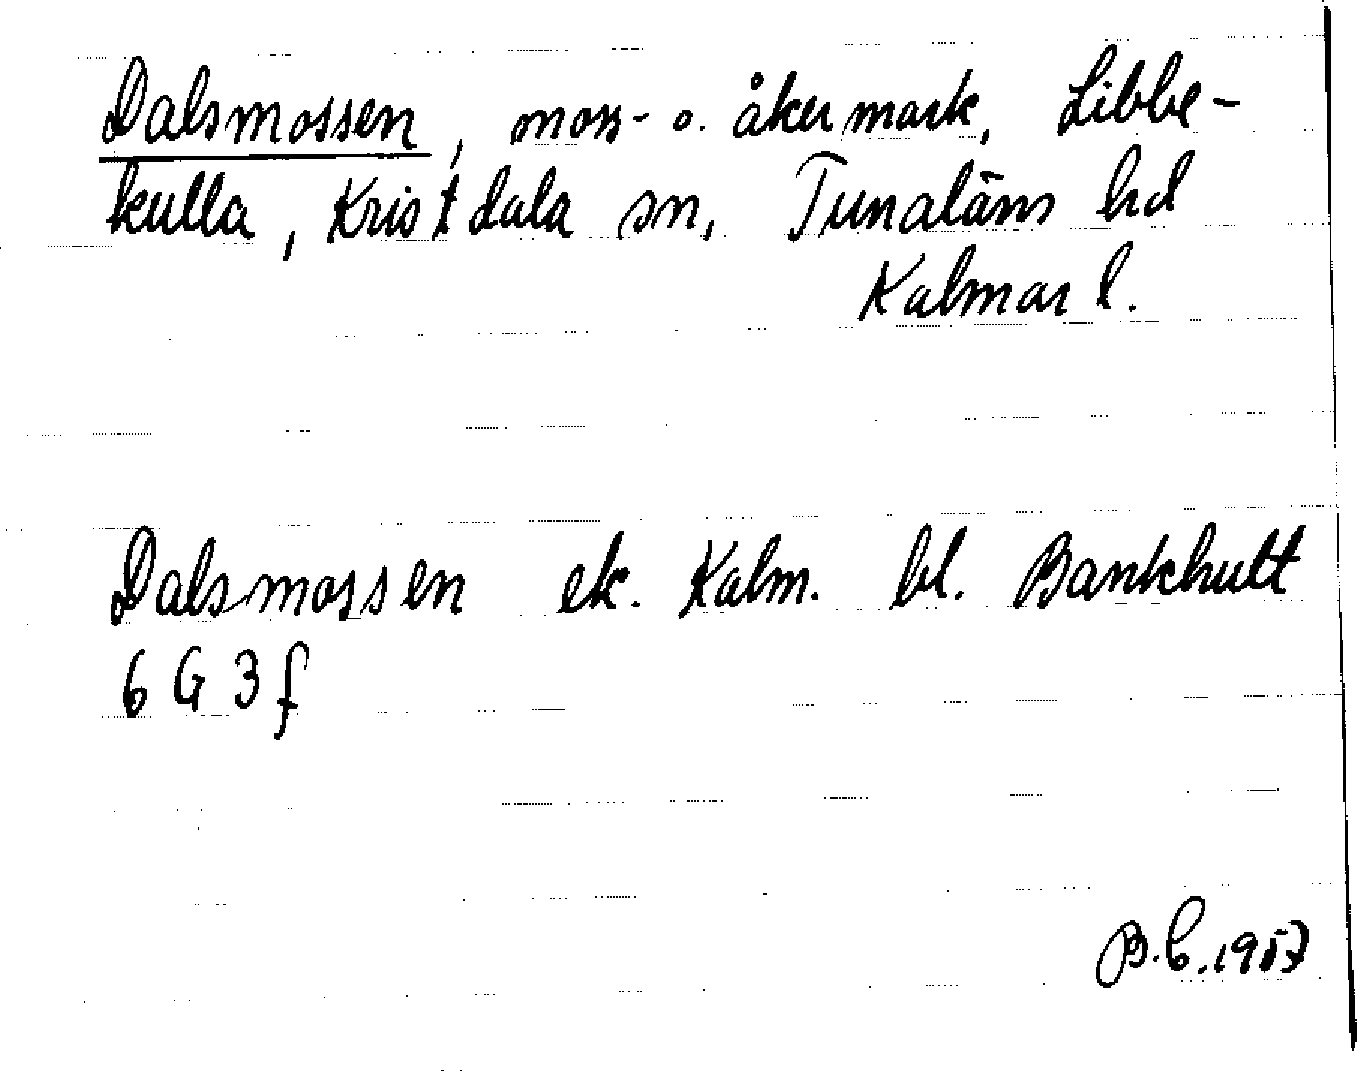 Dalsmossen, moss- o. åkermark, Libbe-
kulla, Kristdala sn, Tunaläns hd
Kalmar l.
Dalsmossen ek. Kalm. bl. Bankhult
6 G 3 f